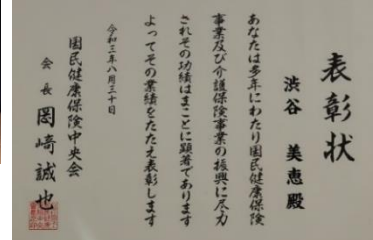 表彰状
渋谷 美恵殿
あなたは多年にわたり国民健康保険
事業及び介護保険事業の振興に尽力
されその功績はまことに顕著であります
よってその業績をたたえ表彰します
令和三年八月三十日
国民健康保険中央会
会長 岡﨑誠也